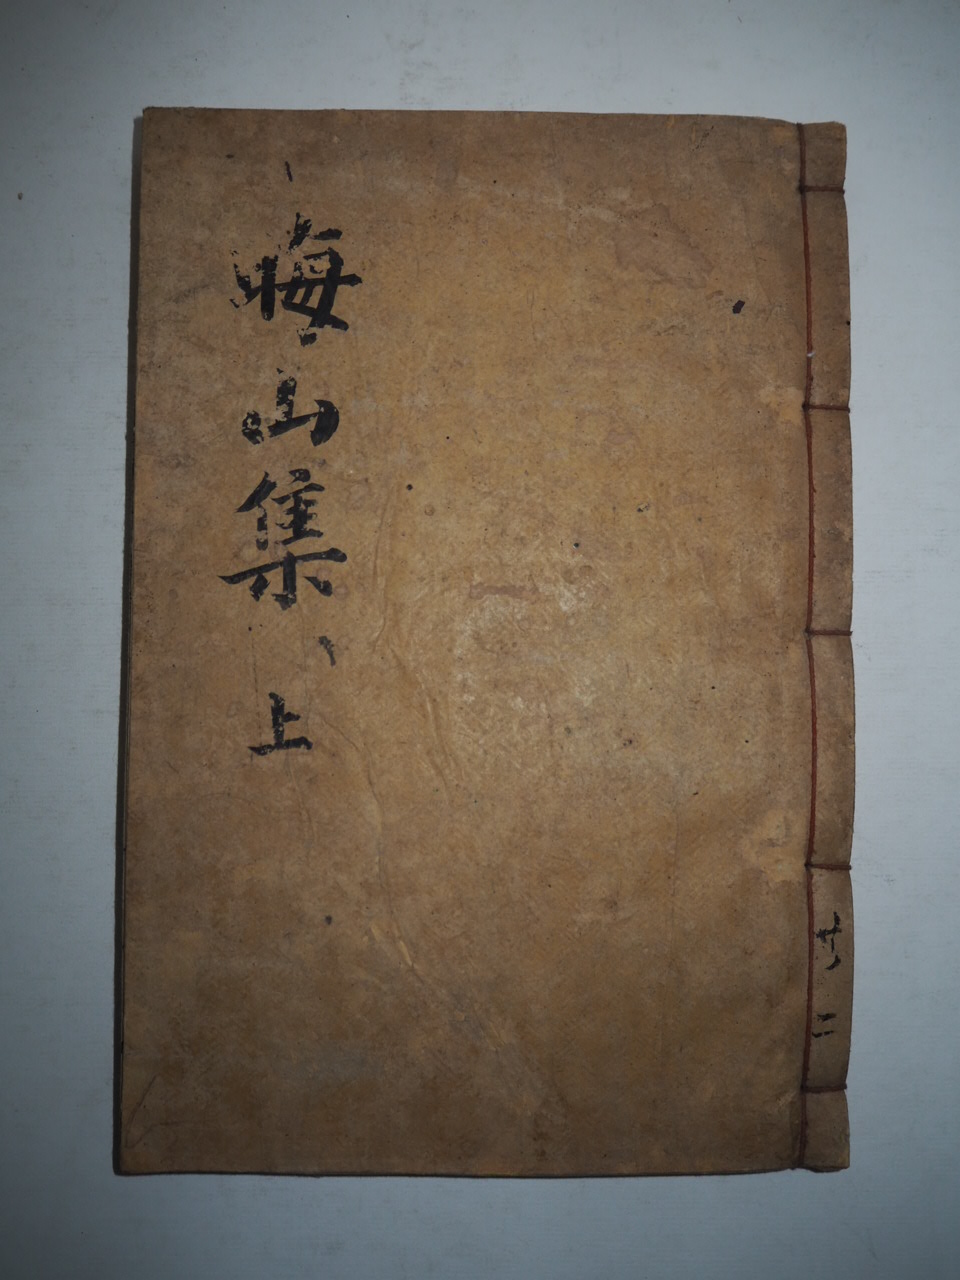 晦山集
上
共二